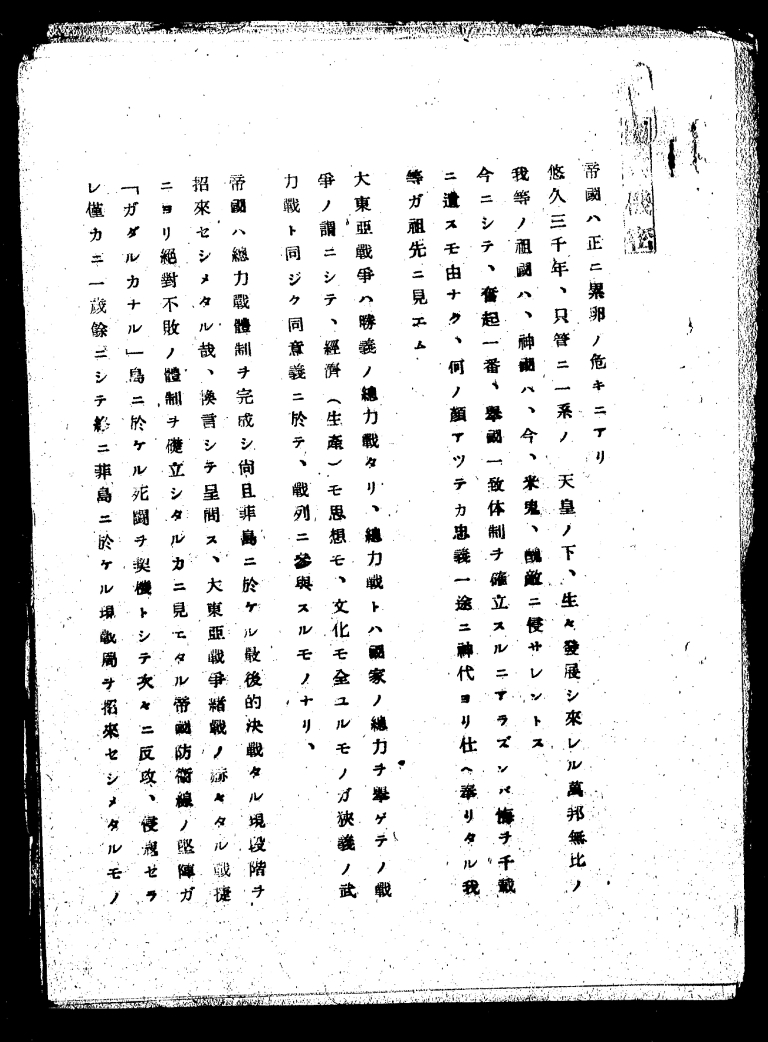 帝國ハ正ニ累卵ノ危キニアリ
悠久三千年、只管ニ一系ノ 天皇ノ下、生々發展シ來レル萬邦無比ノ
我等ノ祖國ハ、神國ハ、今、米鬼、醜敵ニ侵サレントス
今ニシテ、奮起一番、擧國一致体制ヲ確立スルニアラズンバ悔ヲ千載
ニ遺スモ由ナク、何ノ顏アツテカ忠義一途ニ神代ヨリ仕ヘ奉リタル我
等ガ祖先ニ見エム
大東亞戰爭ハ勝義ノ總力戰タリ、總力戰トハ國家ノ總力ヲ擧ゲテノ戰
爭ノ謂ニシテ、經濟(生產)モ思想モ、文化モ全ユルモノガ狹義ノ武
力戰ト同ジク同意義ニ於テ、戰列ニ參與スルモノナリ、
帝國ハ總力戰體制ヲ完成シ尚且菲島ニ於ケル最後的決戰タル現段階ヲ
招來セシメタル哉、換言シテ呈問ス、大東亞戰爭緖戰ノ赫々タル戰捷
ニヨリ絕對不敗ノ體制ヲ確立シタルカニ見エタル帝國防衞線ノ堅陣ガ
「ガダルカナル」島ニ於ケル死鬪ヲ契機トシテ次々ニ反攻、侵寇セラ
レ僅カニ一歲餘ニシテ終ニ菲島ニ於ケル現戰局ヲ招來セシメタルモノ